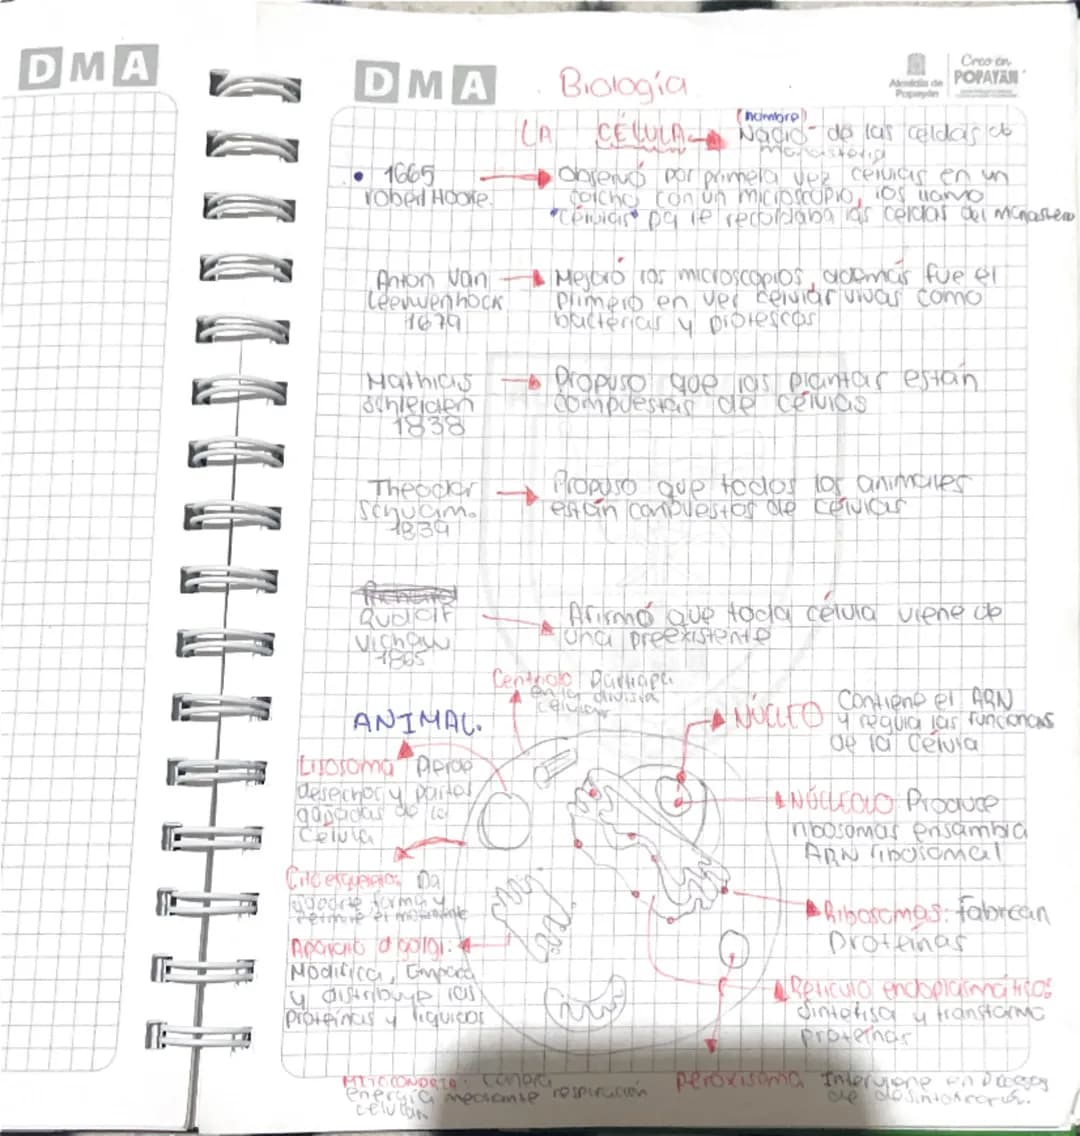 DMA
DMA
Biología
Alcaldía de Popayán
Creo en POPAYÁN
LA CÉLULA
(nombre)
Nació de las celdas de
monasterio
• 1665
robert Hooke.
Observó por primera vez celulas en un
corcho con un microscopio, los llamo
"celulas" pq le recordaba las celdas del monasterio
Anton Van
Leeuwenhock
1674
Mejoró los microscopios, además fue el
primero en ver celular vivas como
bacterias y protescos
Mathias
Schleiden
1838
Propuso que las plantas están
compuestas de células
Theodor
Schwam.
1839
Propuso que todos los animales
están compuestos de células
Rudolf
Virchow
1865
Afirmó que toda célula viene de
una preexistente
Centriolo: Participa
en la división
celular
ANIMAL.
NÚCLEO
Contiene el ARN
y regula las funciones
de la célula
Lisosoma
desechos y partes
gastadas de la
Celula
NÚCLEOLO: Produce
ribosomas ensambla
ARN ribosomal
Citoesqueleto: Da
forma y
permite el movimiento
Ribosomas: Fabrican
proteínas
Aparato d golgi:
Modifica, Empaca
y distribuye las
proteínas y liquidos
Reticulo endoplasmáticos
Sintetisa y transforma
proteínas
MITOCONDRIA: Genera
energía mediante respiración
celular
peroxisoma Interviene en Procesos
de